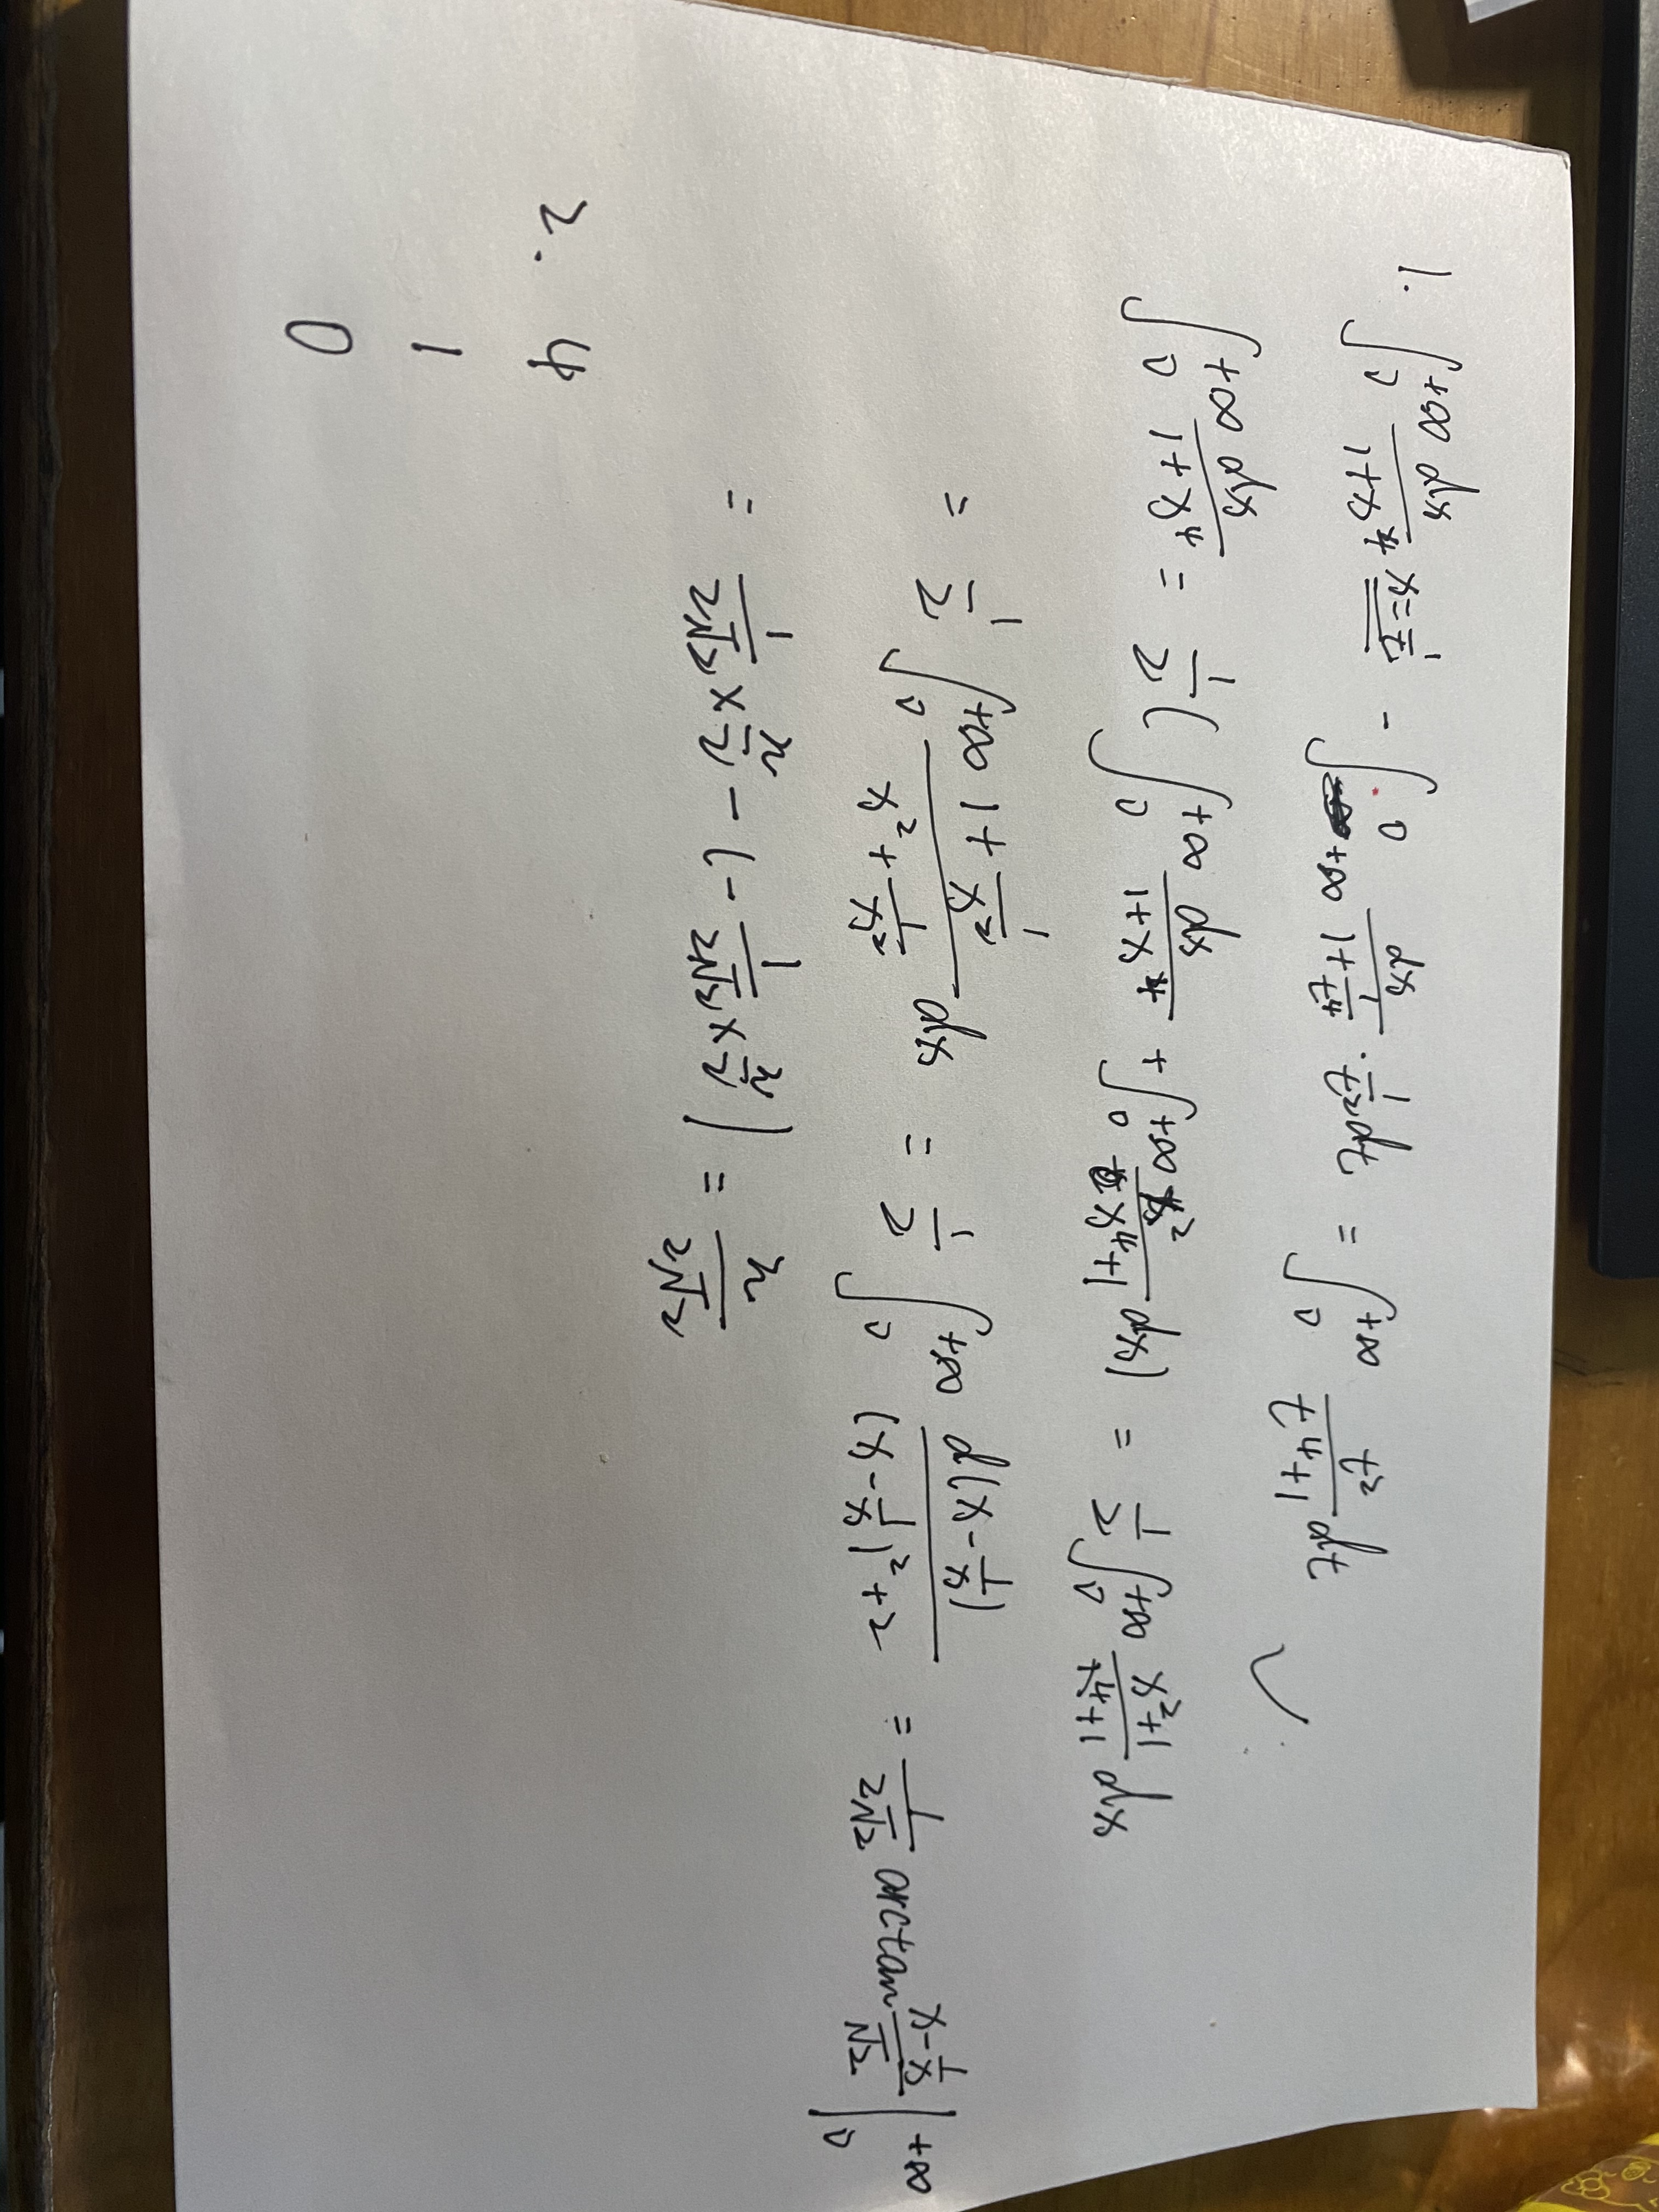 1. ∫₀^{+∞} dx/(1+x⁴) \xlongequal{x=1/t} -∫_{+∞}^0 dx/(1+1/t⁴) · 1/t² dt = ∫₀^{+∞} t²/(t⁴+1) dt
∫₀^{+∞} dx/(1+x⁴) = 1/2 (∫₀^{+∞} dx/(1+x⁴) + ∫₀^{+∞} x²/(x⁴+1) dx) = 1/2 ∫₀^{+∞} (1+x²)/(1+x⁴) dx
= 1/2 ∫₀^{+∞} (1+1/x²)/(x²+1/x²) dx = 1/2 ∫₀^{+∞} d(x-1/x)/((x-1/x)²+2) = 1/(2√2) arctan (x-1/x)/√2 |₀^{+∞}
= 1/(2√2) × π/2 - (-1/(2√2) × π/2) = π/(2√2)
2. 4
1
0